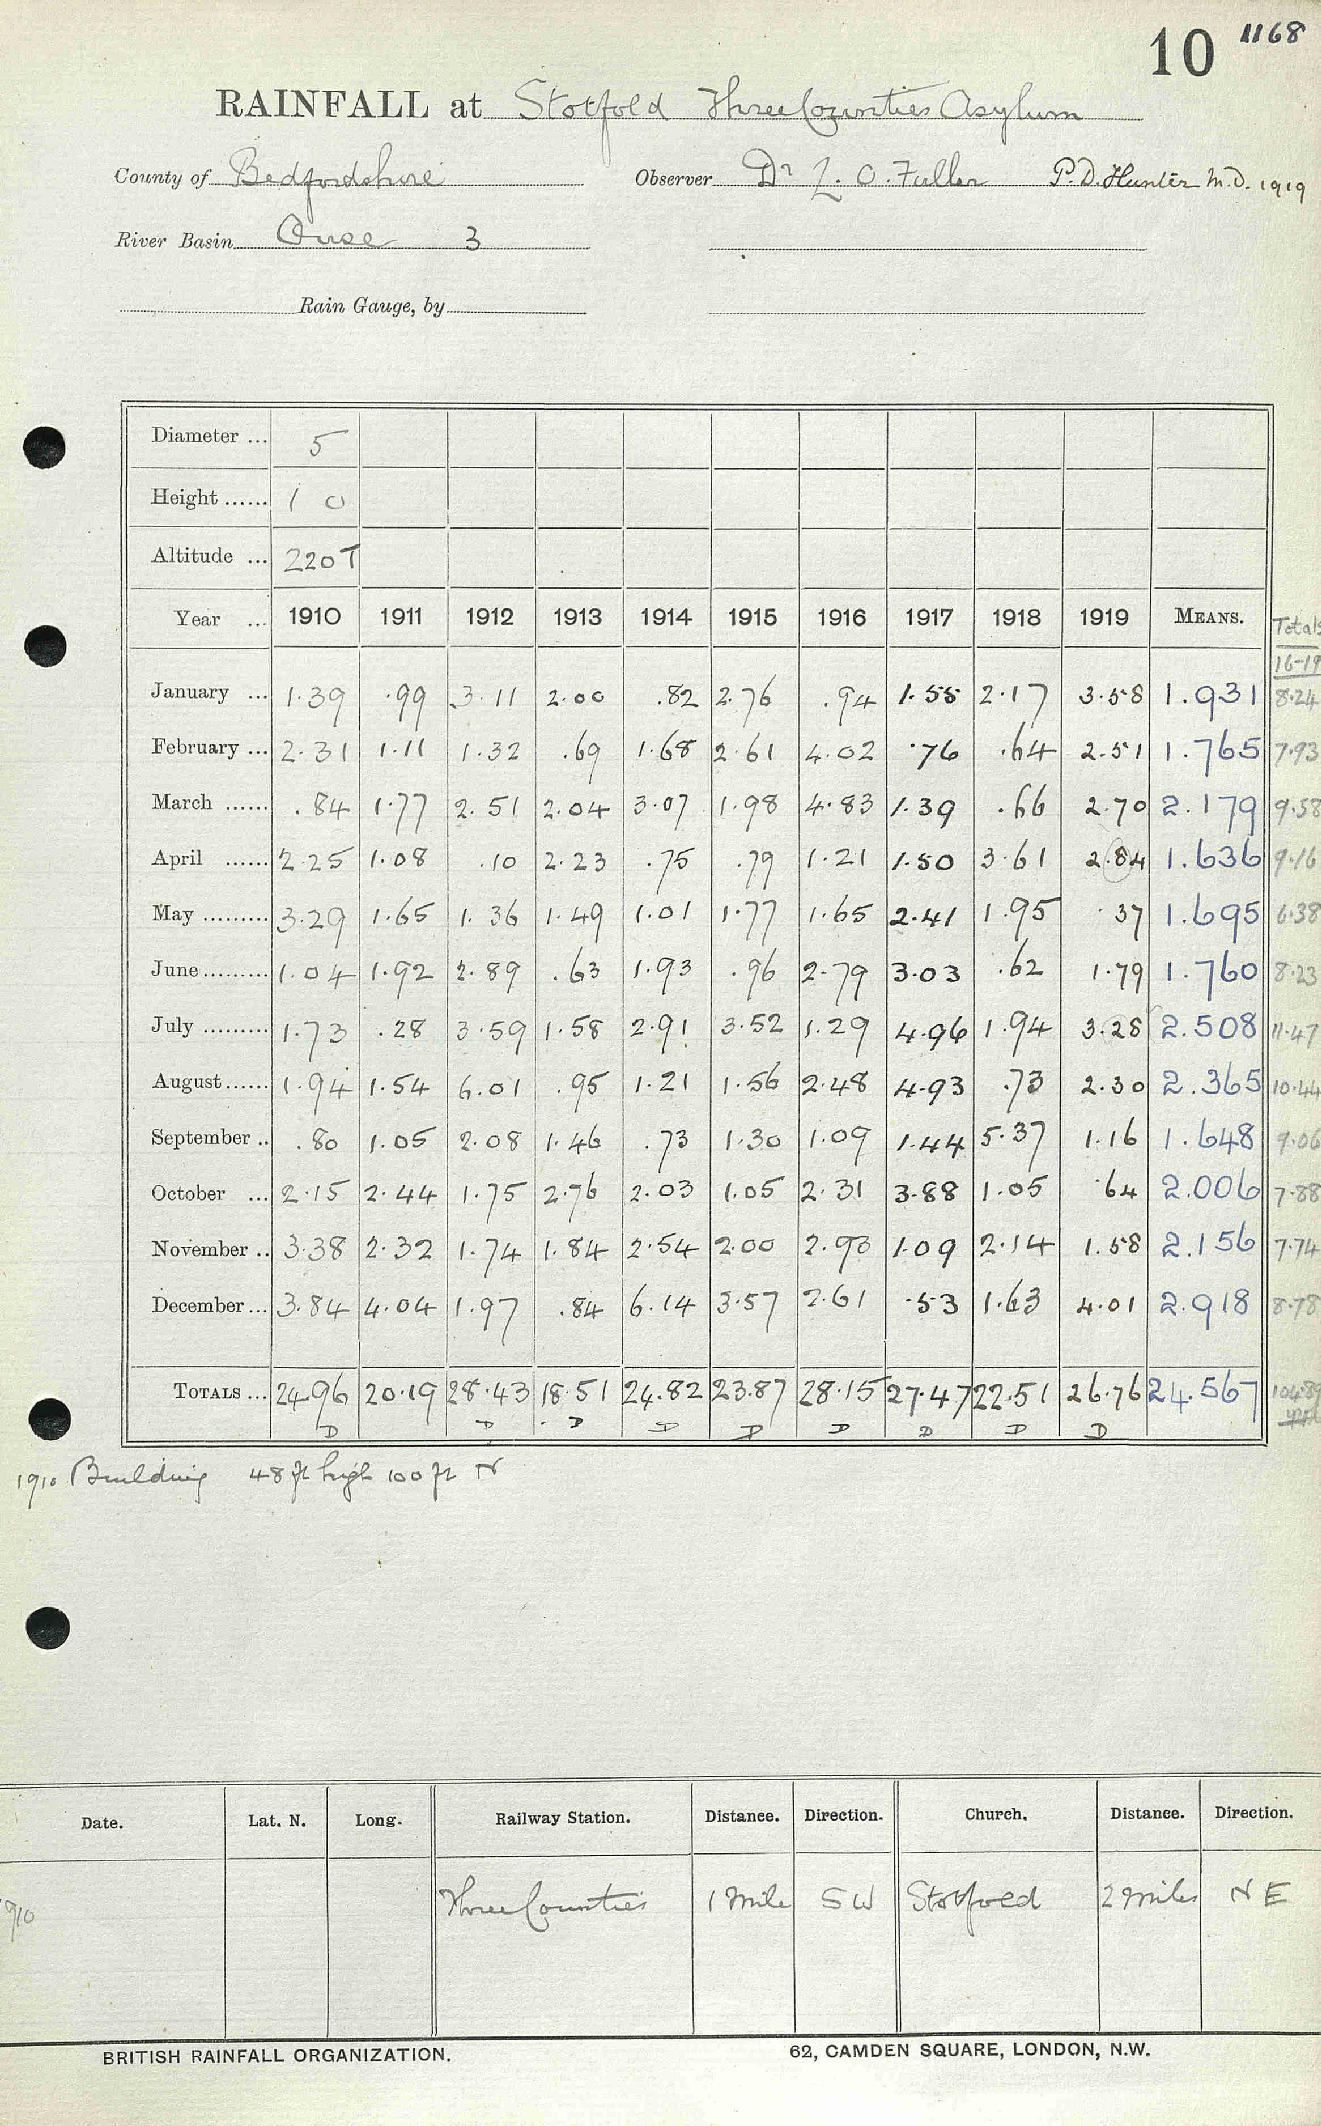 10 1168
RAINFALL at Stotfold Three Counties Asylum
County of Bedfordshire Observer Dr L. O. Fuller P.D. Hunter M.D. 1919
River Basin Ouse 3
Rain Gauge, by
Diameter ... 5
Height ...... 1 0
Altitude ... 220 T
Year ... 1910 1911 1912 1913 1914 1915 1916 1917 1918 1919 MEANS. Totals
16-19
January ... 1.39 .99 3.11 2.00 .82 2.76 .94 1.55 2.17 3.58 1.931 8.24
February ... 2.31 1.11 1.32 .69 1.68 2.61 4.02 .76 .64 2.51 1.765 7.93
March ...... .84 1.77 2.51 2.04 3.07 1.98 4.83 1.39 .66 2.70 2.179 9.58
April ...... 2.25 1.08 .10 2.23 .75 .79 1.21 1.50 3.61 2.84 1.636 9.16
May ......... 3.29 1.65 1.36 1.49 1.01 1.77 1.65 2.41 1.95 .37 1.695 6.38
June ......... 1.04 1.92 2.89 .63 1.93 .96 2.79 3.03 .62 1.79 1.760 8.23
July ......... 1.73 .28 3.59 1.58 2.91 3.52 1.29 4.96 1.94 3.28 2.508 11.47
August ...... 1.94 1.54 6.01 .95 1.21 1.56 2.48 4.93 .73 2.30 2.365 10.44
September .. .80 1.05 2.08 1.46 .73 1.30 1.09 1.44 5.37 1.16 1.648 9.06
October ... 2.15 2.44 1.75 2.76 2.03 1.05 2.31 3.88 1.05 .64 2.006 7.88
November .. 3.38 2.32 1.74 1.84 2.54 2.00 2.93 1.09 2.14 1.58 2.156 7.74
December ... 3.84 4.04 1.97 .84 6.14 3.57 2.61 .53 1.63 4.01 2.918 8.78
TOTALS ... 24.96 20.19 28.43 18.51 24.82 23.87 28.15 27.47 22.51 26.76 24.567 104.89
D D D D D D D D D
1910 Building 48 ft high 100 ft N
Date. Lat. N. Long. Railway Station. Distance. Direction. Church. Distance. Direction.
1910 Three Counties 1 Mile SW Stotfold 2 miles NE
BRITISH RAINFALL ORGANIZATION. 62, CAMDEN SQUARE, LONDON, N.W.